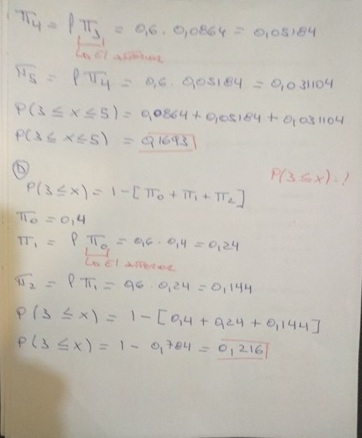 π4 = ρ π3 = 0,6 · 0,0864 = 0,05184
π5 = ρ π4 = 0,6 · 0,05184 = 0,031104
P(3 ≤ x ≤ 5) = 0,0864 + 0,05184 + 0,031104
P(3 ≤ x ≤ 5) = 0,1693
D
P(3 ≤ x) = ?
P(3 ≤ x) = 1 - [π0 + π1 + π2]
π0 = 0,4
π1 = ρ π0 = 0,6 · 0,4 = 0,24
π2 = ρ π1 = 0,6 · 0,24 = 0,144
P(3 ≤ x) = 1 - [0,4 + 0,24 + 0,144]
P(3 ≤ x) = 1 - 0,784 = 0,216